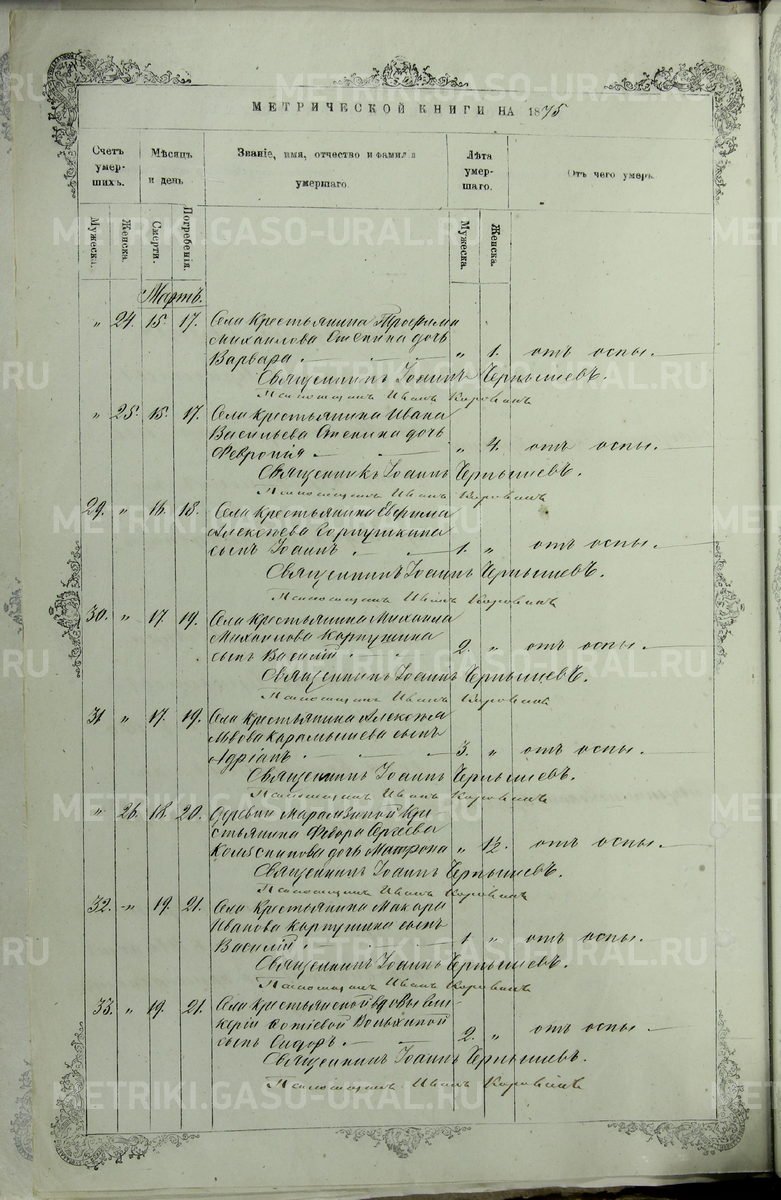 МЕТРИЧЕСКОЙ КНИГИ НА 1875
Счетъ умершихъ.
Мѣсяцъ и день
Званіе, имя, отчество и фамилія умершаго.
Лѣта умершаго.
Отъ чего умеръ.
Мужеска.
Женска.
Смерти.
Погребенія.
Мужеска.
Женска.
Мартъ.
" 24. 15. 17. Села крестьянина Трофима
Михаилова Степина дочь
Варвара " 1. отъ оспы.
Священникъ Іоаннъ Чернышевъ.
Псаломщикъ Иванъ
" 25. 15. 17. Села крестьянина Ивана
Васильева Степина дочь
Февронія " 4. отъ оспы.
Священникъ Іоаннъ Чернышевъ.
Псаломщикъ Иванъ
29. " 16. 18. Села крестьянина Ефима
Алексѣева
сынъ Іоаннъ 1. " отъ оспы.
Священникъ Іоаннъ Чернышевъ.
Псаломщикъ Иванъ
30. " 17. 19. Села крестьянина Михаила
Михаилова Карпушина
сынъ Василій 2. " отъ оспы.
Священникъ Іоаннъ Чернышевъ.
Псаломщикъ Иванъ
31 " 17. 19. Села крестьянина Алексѣя
Львова Карамышева сынъ
Адріанъ 3. " отъ оспы.
Священникъ Іоаннъ Чернышевъ.
Псаломщикъ Иванъ
" 26. 18. 20. Деревни Марамзиной кре
стьянина Ѳедора Сергѣева
Колѣсникова дочь Матрона " 1½. отъ оспы.
Священникъ Іоаннъ Чернышевъ.
Псаломщикъ Иванъ
32. " 19. 21. Села крестьянина Макара
Иванова Карпушина сынъ
Василій 1. " отъ оспы.
Священникъ Іоаннъ Чернышевъ.
Псаломщикъ Иванъ
33. " 19. 21. Села крестьянской вдовы
сынъ Сидоръ 2. " отъ оспы.
Священникъ Іоаннъ Чернышевъ.
Псаломщикъ Иванъ
METRIKI.GASO-URAL.RU